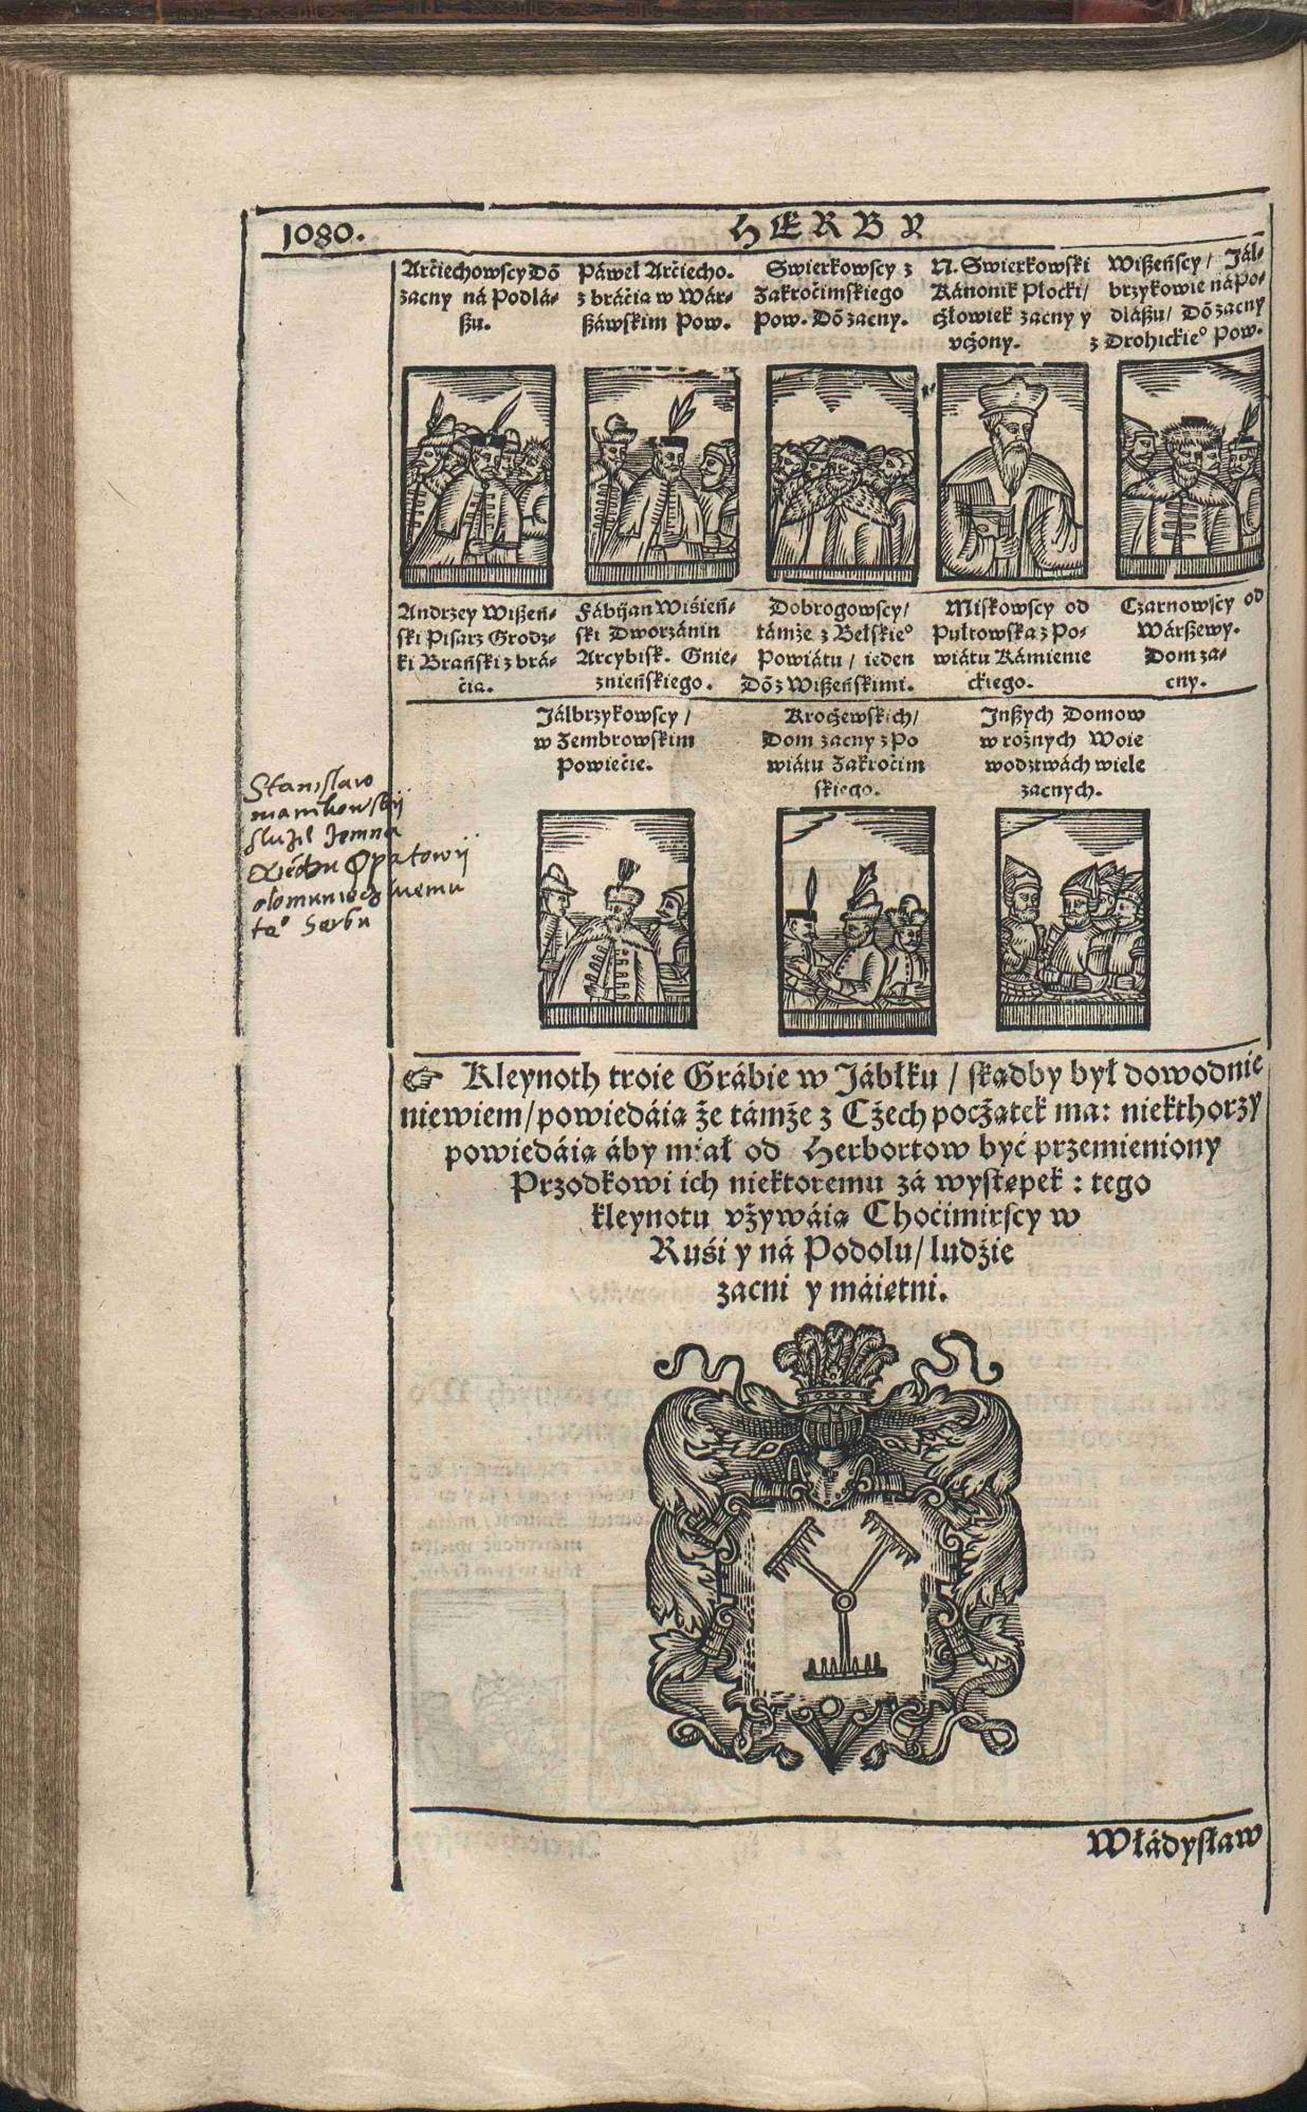 1080.
HERBY
Arćiechowscy Dō
zacny ná Podlá-
ßu.
Páweł Arćiecho.
z bráćia w Wár-
ßáwskim Pow.
Swierkowscy z
Zakroćimskiego
Pow. Dō zacny.
N. Swierkowski
Kánonik Płocki/
cżłowiek zacny y
vcżony.
Wißeńscy/ Jál-
brzykowie ná Po-
dláßu/ Dō zacny
z Drohickie° Pow.
Andrzey Wißeń-
ski Pisarz Grodz-
ki Brański z brá-
ćia.
Fábijan Wiśień-
ski Dworzánin
Arcybisk. Gnie-
znieńskiego.
Dobrogowscy/
támże z Belskie°
Powiátu/ ieden
Dō z Wißeńskimi.
Miskowscy od
Pułtowska z Po-
wiátu Kámienie
ckiego.
Czarnowscy od
Wárßewy.
Dom za-
cny.
Jálbrzykowscy/
w Zembrowskim
Powiećie.
Krocżewskich/
Dom zacny z Po
wiátu Zakroćim
skiego.
Jnßych Domow
w rożnych Woie
wodztwách wiele
zacnych.
Stanislaw
slużil
Opatowij
ta° herbu
☞ Kleynoth troie Grábie w Jábłku/ skądby był dowodnie
niewiem/powiedáią że támże z Cżech pocżątek ma: niekthorzy
powiedáią áby miał od Herbortow być przemieniony
Przodkowi ich niektoremu zá występek: tego
kleynotu vżywáią Choćimirscy w
Ruśi y ná Podolu/ ludźie
zacni y máiętni.
Włádysław